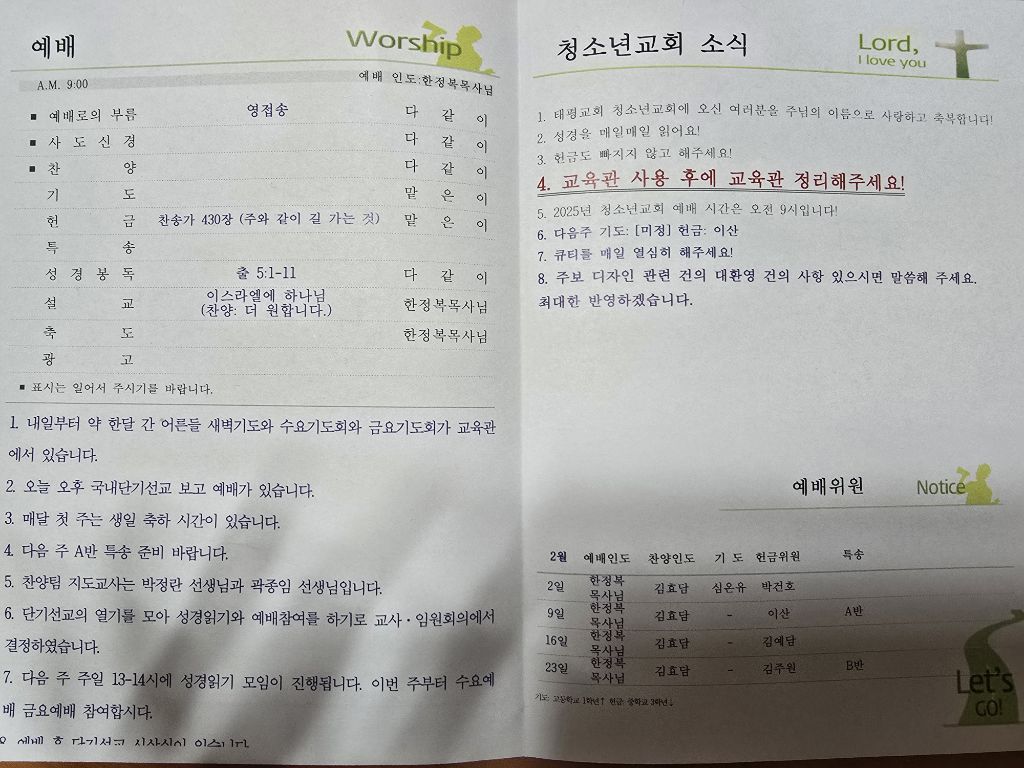 예배
Worship
A.M. 9:00
예배 인도:한정복목사님
■ 예배로의 부름 영접송 다 같 이
■ 사 도 신 경 다 같 이
■ 찬 양 다 같 이
기 도 맡 은 이
헌 금 찬송가 430장 (주와 같이 길 가는 것) 맡 은 이
특 송
성 경 봉 독 출 5:1-11 다 같 이
설 교 이스라엘에 하나님 한정복목사님
(찬양: 더 원합니다.)
축 도 한정복목사님
광 고
■ 표시는 일어서 주시기를 바랍니다.
1. 내일부터 약 한달 간 어른들 새벽기도와 수요기도회와 금요기도회가 교육관
에서 있습니다.
2. 오늘 오후 국내단기선교 보고 예배가 있습니다.
3. 매달 첫 주는 생일 축하 시간이 있습니다.
4. 다음 주 A반 특송 준비 바랍니다.
5. 찬양팀 지도교사는 박정란 선생님과 곽종임 선생님입니다.
6. 단기선교의 열기를 모아 성경읽기와 예배참여를 하기로 교사·임원회의에서
결정하였습니다.
7. 다음 주 주일 13-14시에 성경읽기 모임이 진행됩니다. 이번 주부터 수요예
배 금요예배 참여합시다.
8. 예배 후 단기선교 시상식이 있습니다
청소년교회 소식
Lord,
I love you
1. 태평교회 청소년교회에 오신 여러분을 주님의 이름으로 사랑하고 축복합니다!
2. 성경을 매일매일 읽어요!
3. 헌금도 빠지지 않고 해주세요!
4. 교육관 사용 후에 교육관 정리해주세요!
5. 2025년 청소년교회 예배 시간은 오전 9시입니다!
6. 다음주 기도: [미정] 헌금: 이산
7. 큐티를 매일 열심히 해주세요!
8. 주보 디자인 관련 건의 대환영 건의 사항 있으시면 말씀해 주세요.
최대한 반영하겠습니다.
예배위원
Notice
2월 예배인도 찬양인도 기 도 헌금위원 특송
2일 한정복 목사님 김효담 심온유 박건호
9일 한정복 목사님 김효담 - 이산 A반
16일 한정복 목사님 김효담 - 김예담
23일 한정복 목사님 김효담 - 김주원 B반
기도: 고등학교 1학년↑ 헌금: 중학교 3학년↓
Let's
GO!